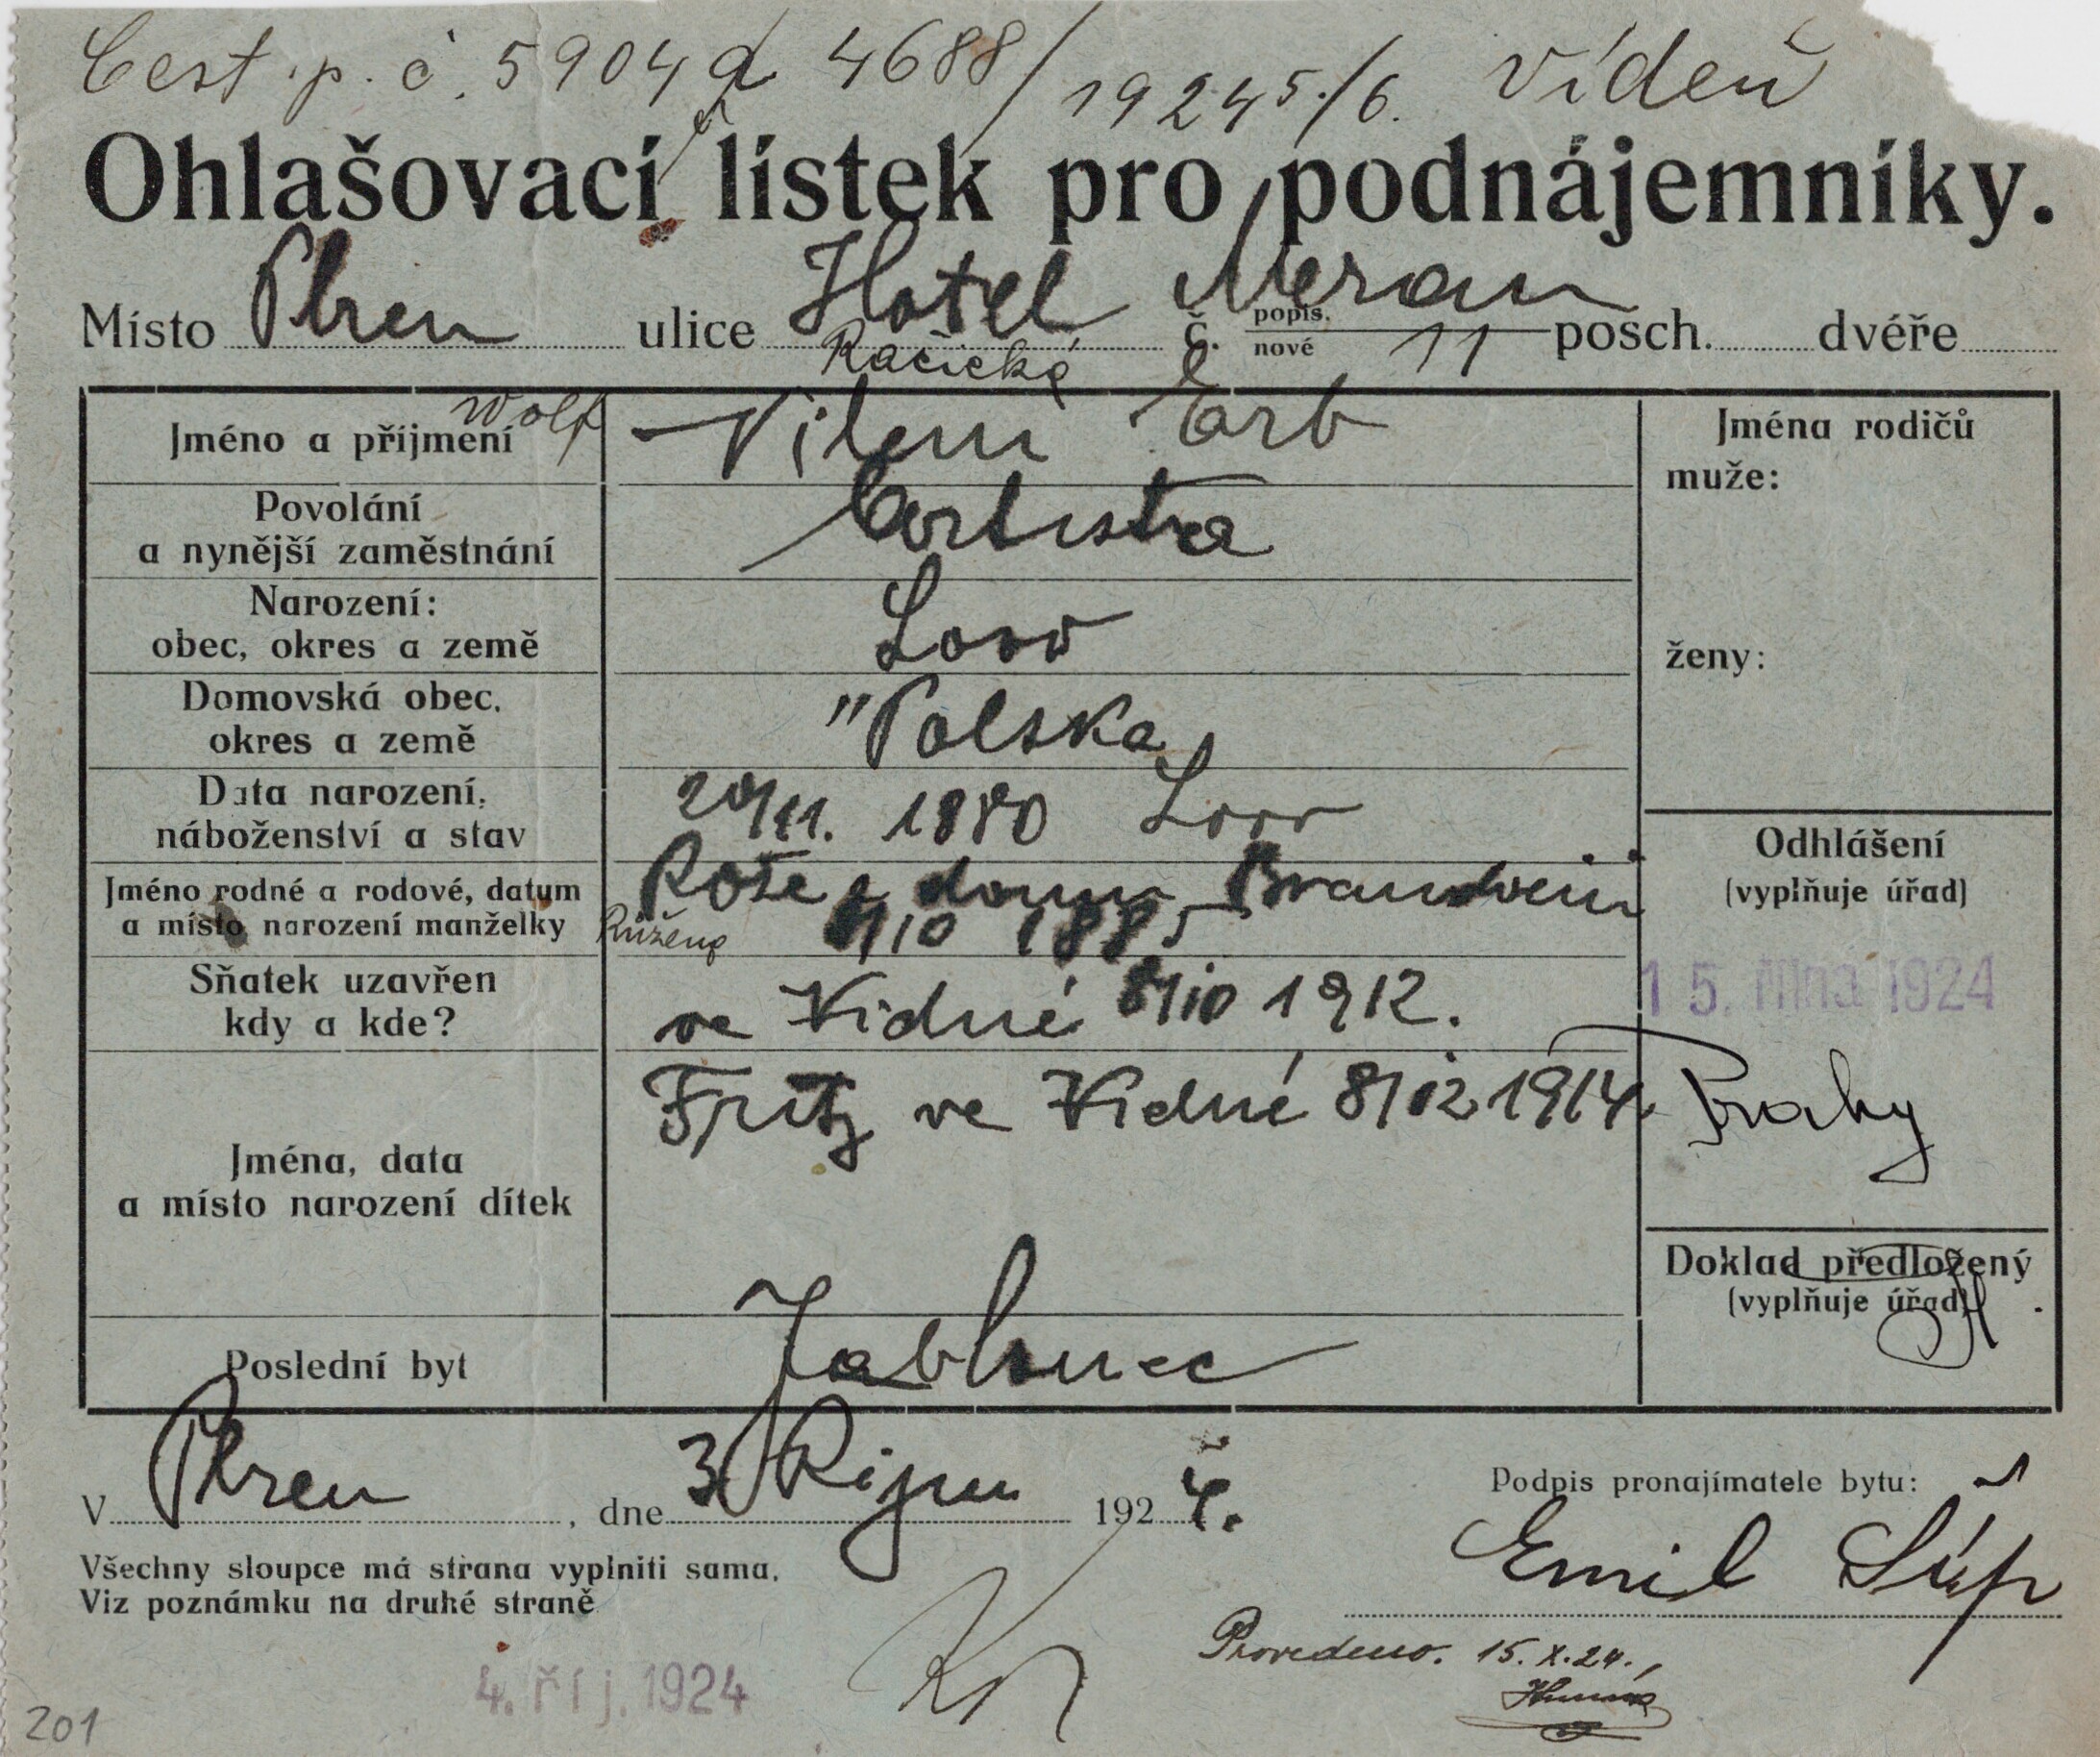 Cest. p. č. 5904 4688/19245./6. Vídeň
Ohlašovací lístek pro podnájemníky.
Místo Plzen ulice Hotel Meran č. popis. nové 11 posch. dvéře
Račická
Jméno a příjmení Wolf Vilem Erb
Povolání
a nynější zaměstnání Artista
Narození:
obec, okres a země Lvov
Domovská obec,
okres a země "Polska
Data narození,
náboženství a stav 1880 Lvov
Jméno rodné a rodové, datum
a místo narození manželky Rože z domu Brandwein
Růžena 8/10 1885
Sňatek uzavřen
kdy a kde? ve Vidné 8/10 1912.
Jména, data
a místo narození dítek Fritz ve Vidné 8/12 1914.
Poslední byt Jablonec
Jména rodičů
muže:
ženy:
Odhlášení
(vyplňuje úřad)
15. října 1924
Prahy
Doklad předložený
(vyplňuje úřad)
V Plzen, dne 3 Rijnu 1924.
Všechny sloupce má strana vyplniti sama.
Viz poznámku na druhé straně
Podpis pronajímatele bytu:
Emil Šúp
Provedeno. 15.X.24.
4. říj. 1924
201